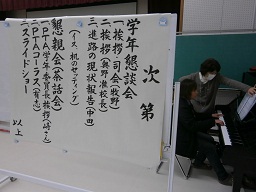 次第
学年懇談会
一挨拶・司会(牧野)
二挨拶(奥野准校長)
三進路の現状報告(中田)
(イス、机のセッティング)
懇親会(茶話会)
一PTA学年委員長挨拶
二PTAコーラス(有志)
三スライドショー
以上